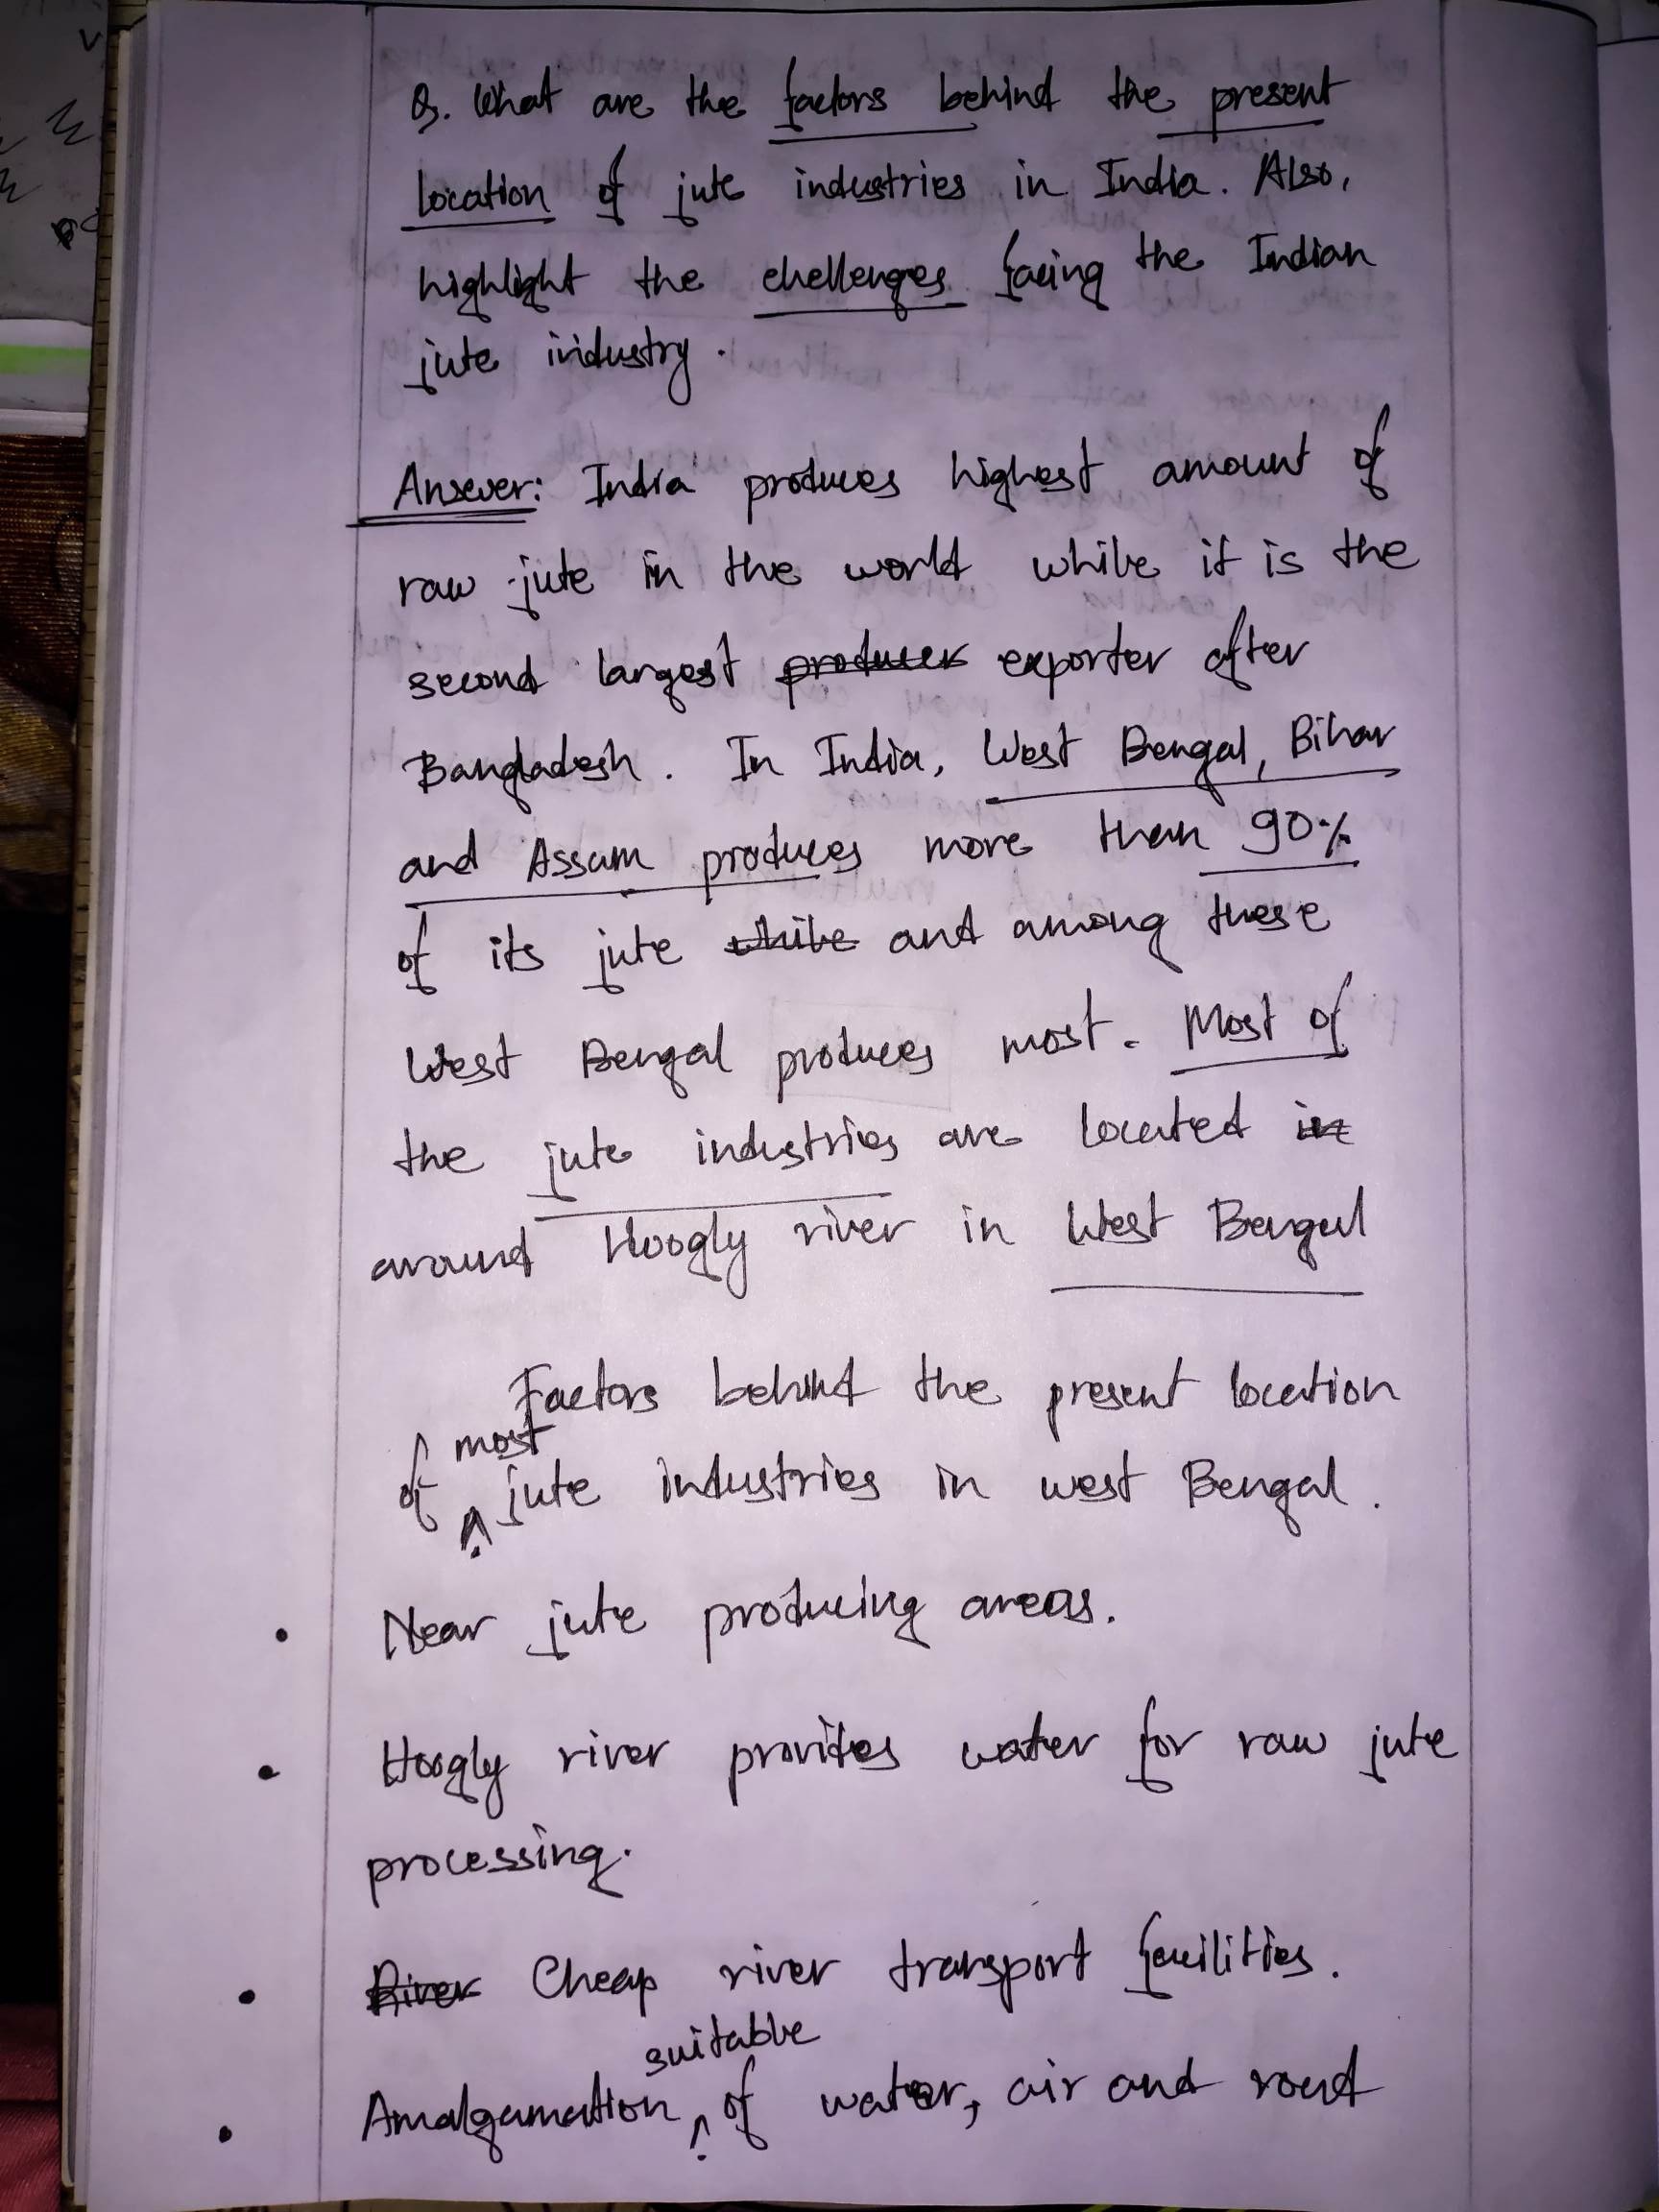 Q. What are the factors behind the present
location of jute industries in India. Also,
highlight the chellenges facing the Indian
jute industry.
Answer: India produces highest amount of
raw jute in the world while it is the
second largest producer exporter after
Bangladesh. In India, West Bengal, Bihar
and Assam produces more than 90%
of its jute while and among these
West Bengal produces most. Most of
the jute industries are located in
around Hoogly river in West Bengal
Factors behind the present location
of most jute industries in west Bengal.
• Near jute producing areas.
• Hoogly river provides water for raw jute
processing.
• River Cheap river transport facilities.
• Amalgamation suitable of water, air and road